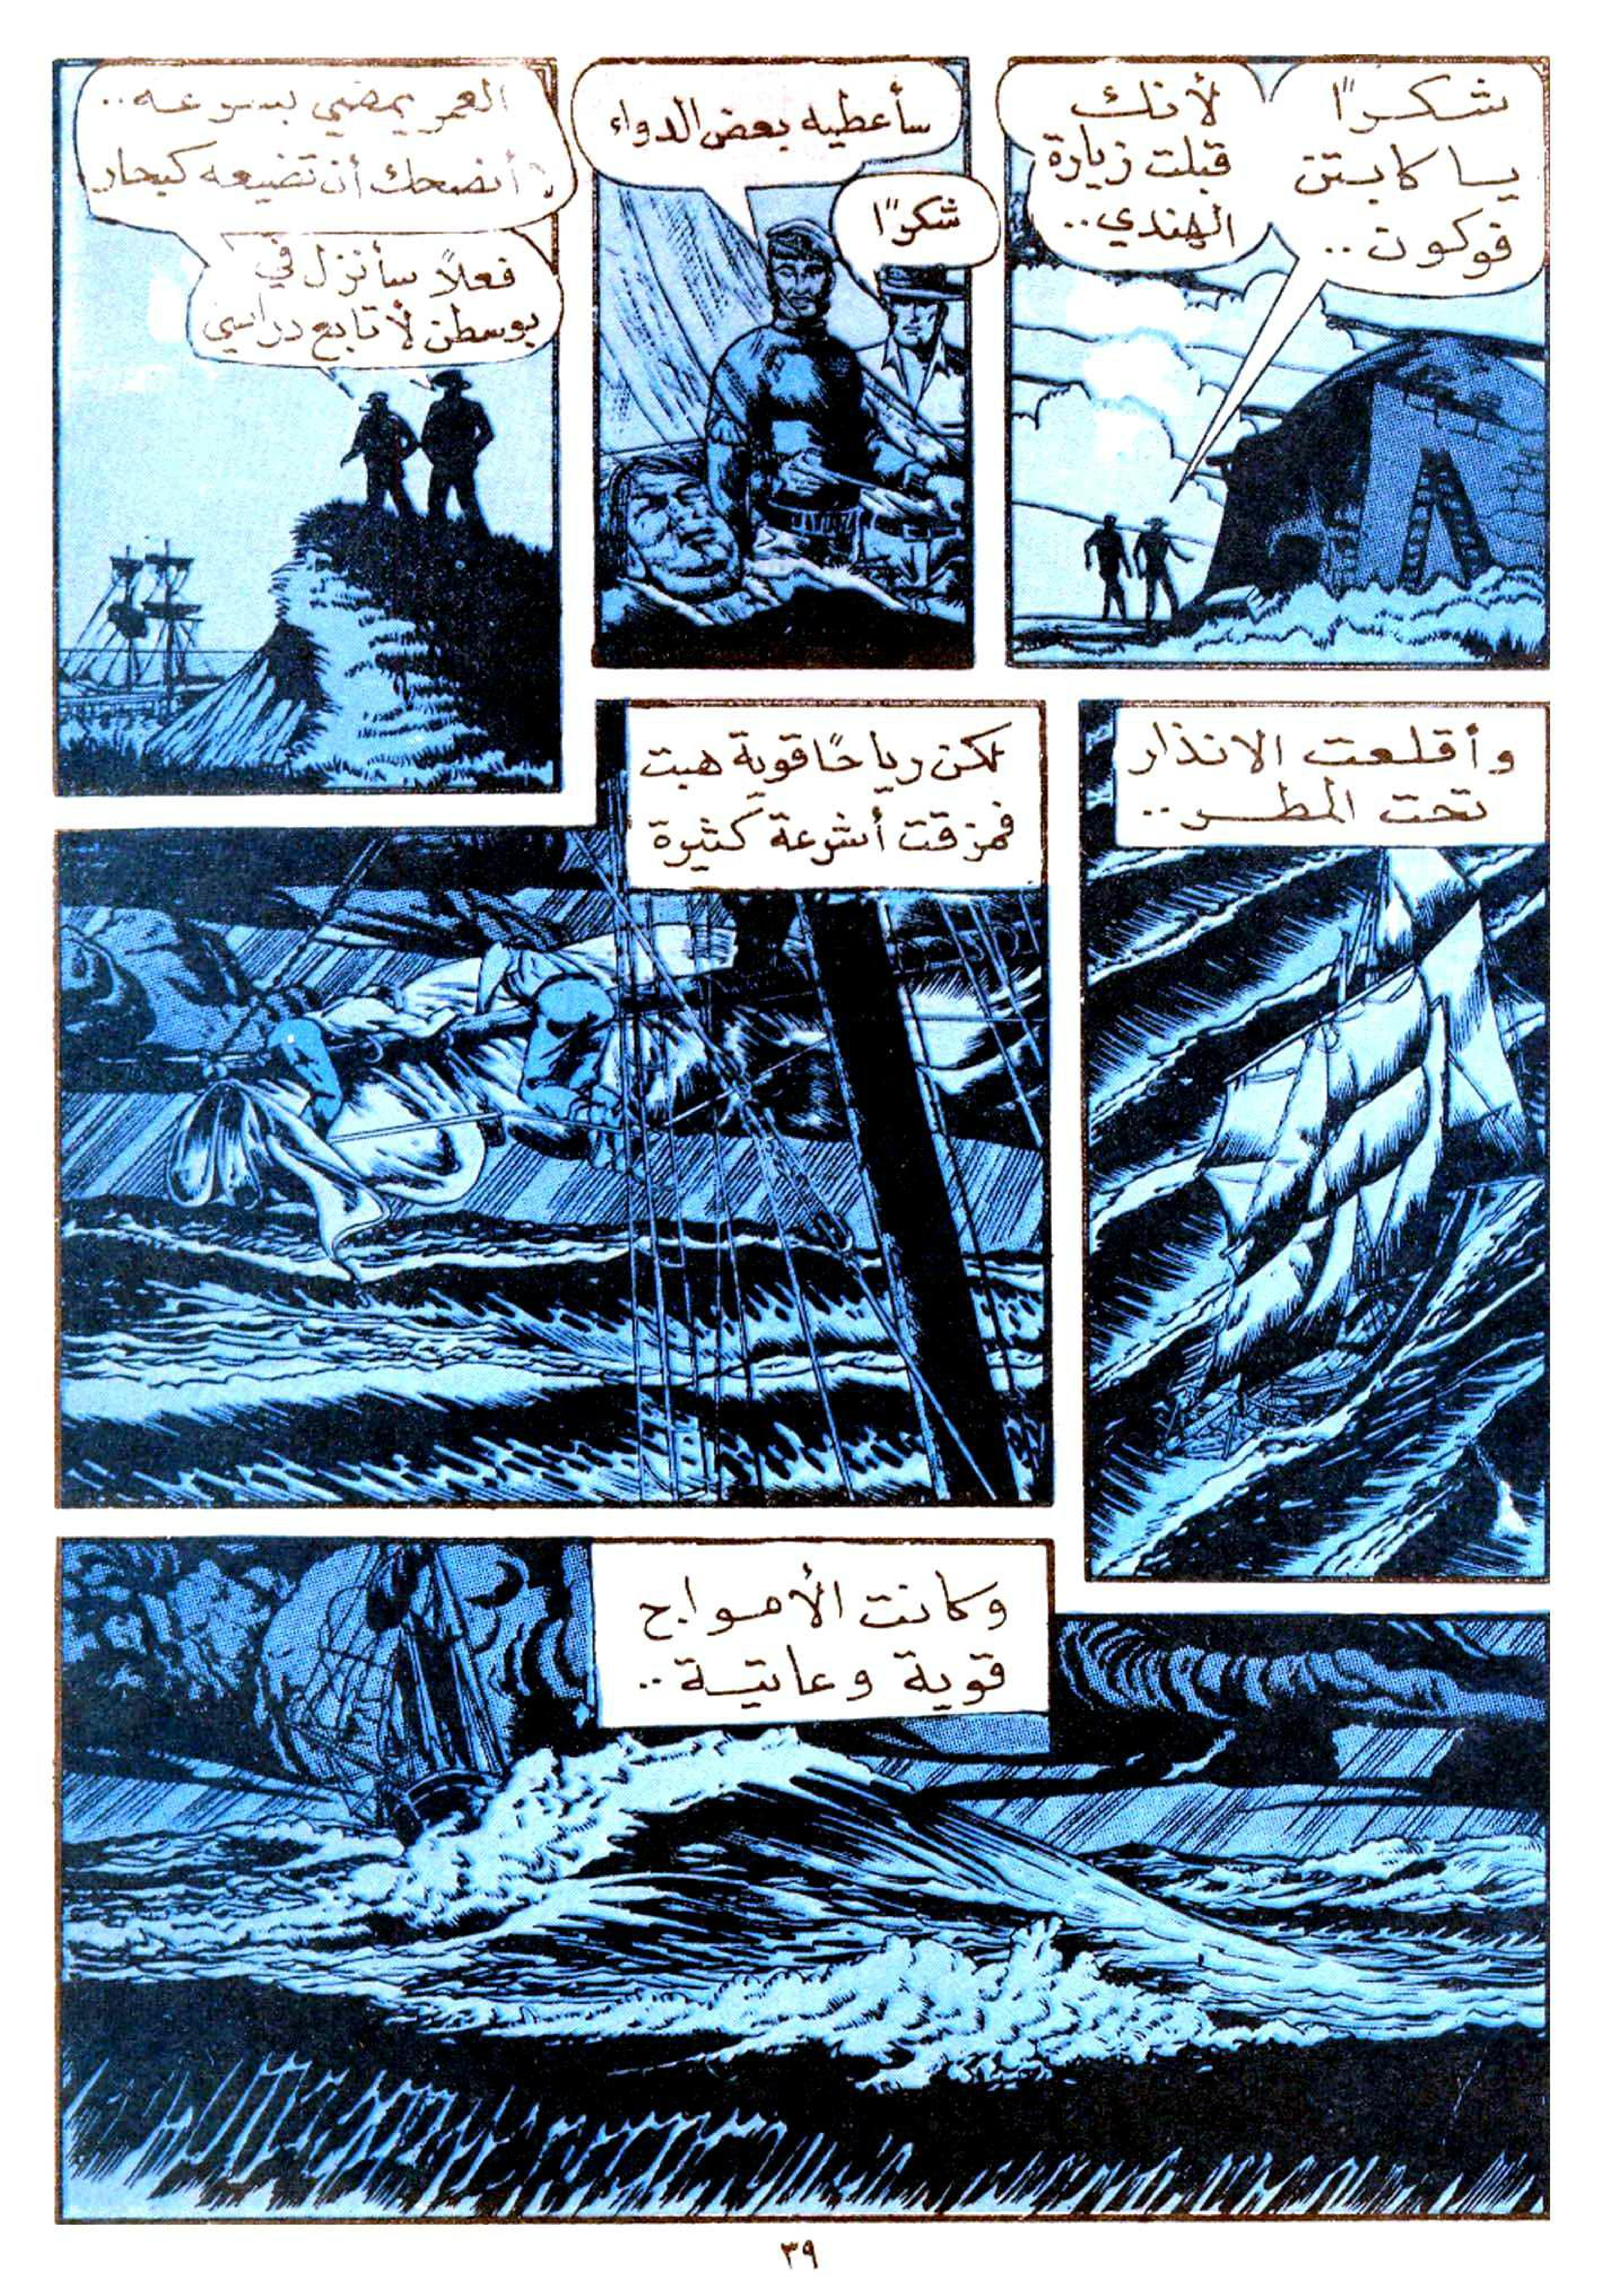 شكرًا
يا كابتن
فوكون..
لأنك
قبلت زيارة
الهندي..
سأعطيه بعض الدواء
شكرًا
العمر يمضي بسرعه..
أنضحك أن تضيعه كبحار
فعلاً سأنزل في
بوسطن لأتابع دراستي
وأقلعت الانذار
تحت المطر..
لكن رياحًا قوية هبت
فمزقت أشرعة كثيرة
وكانت الأمواج
قوية وعاتية..
٣٩